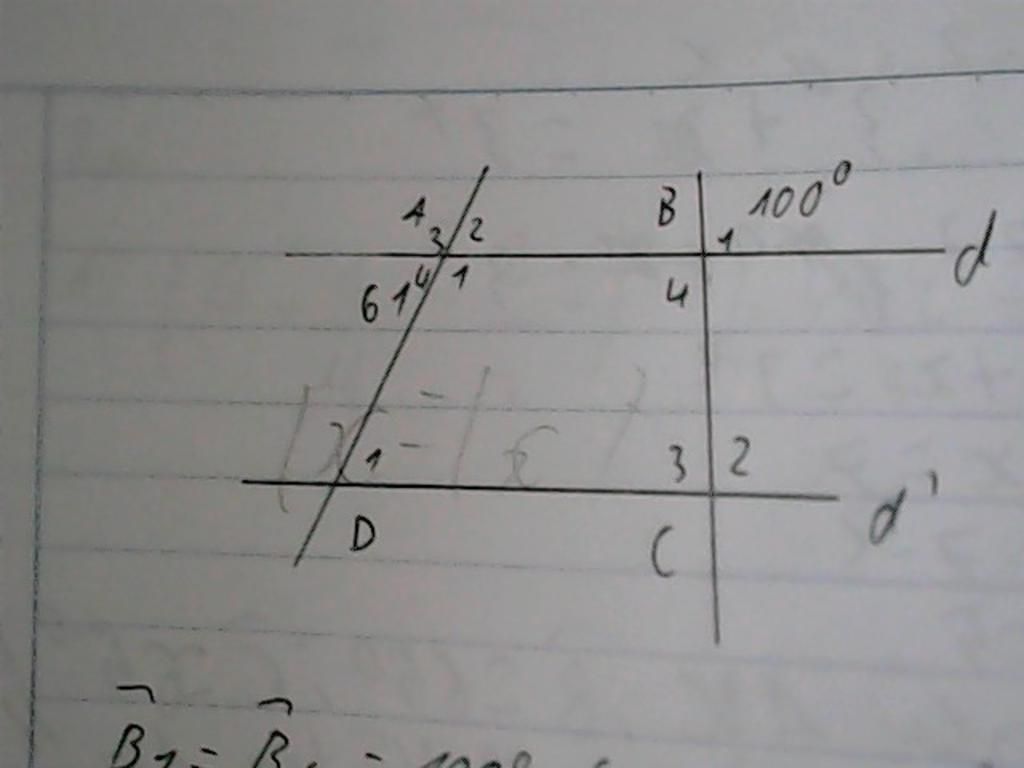 A 3 2 B 1 100⁰
d
61 4 1 4
1 3 2
D C d'
B₁ =